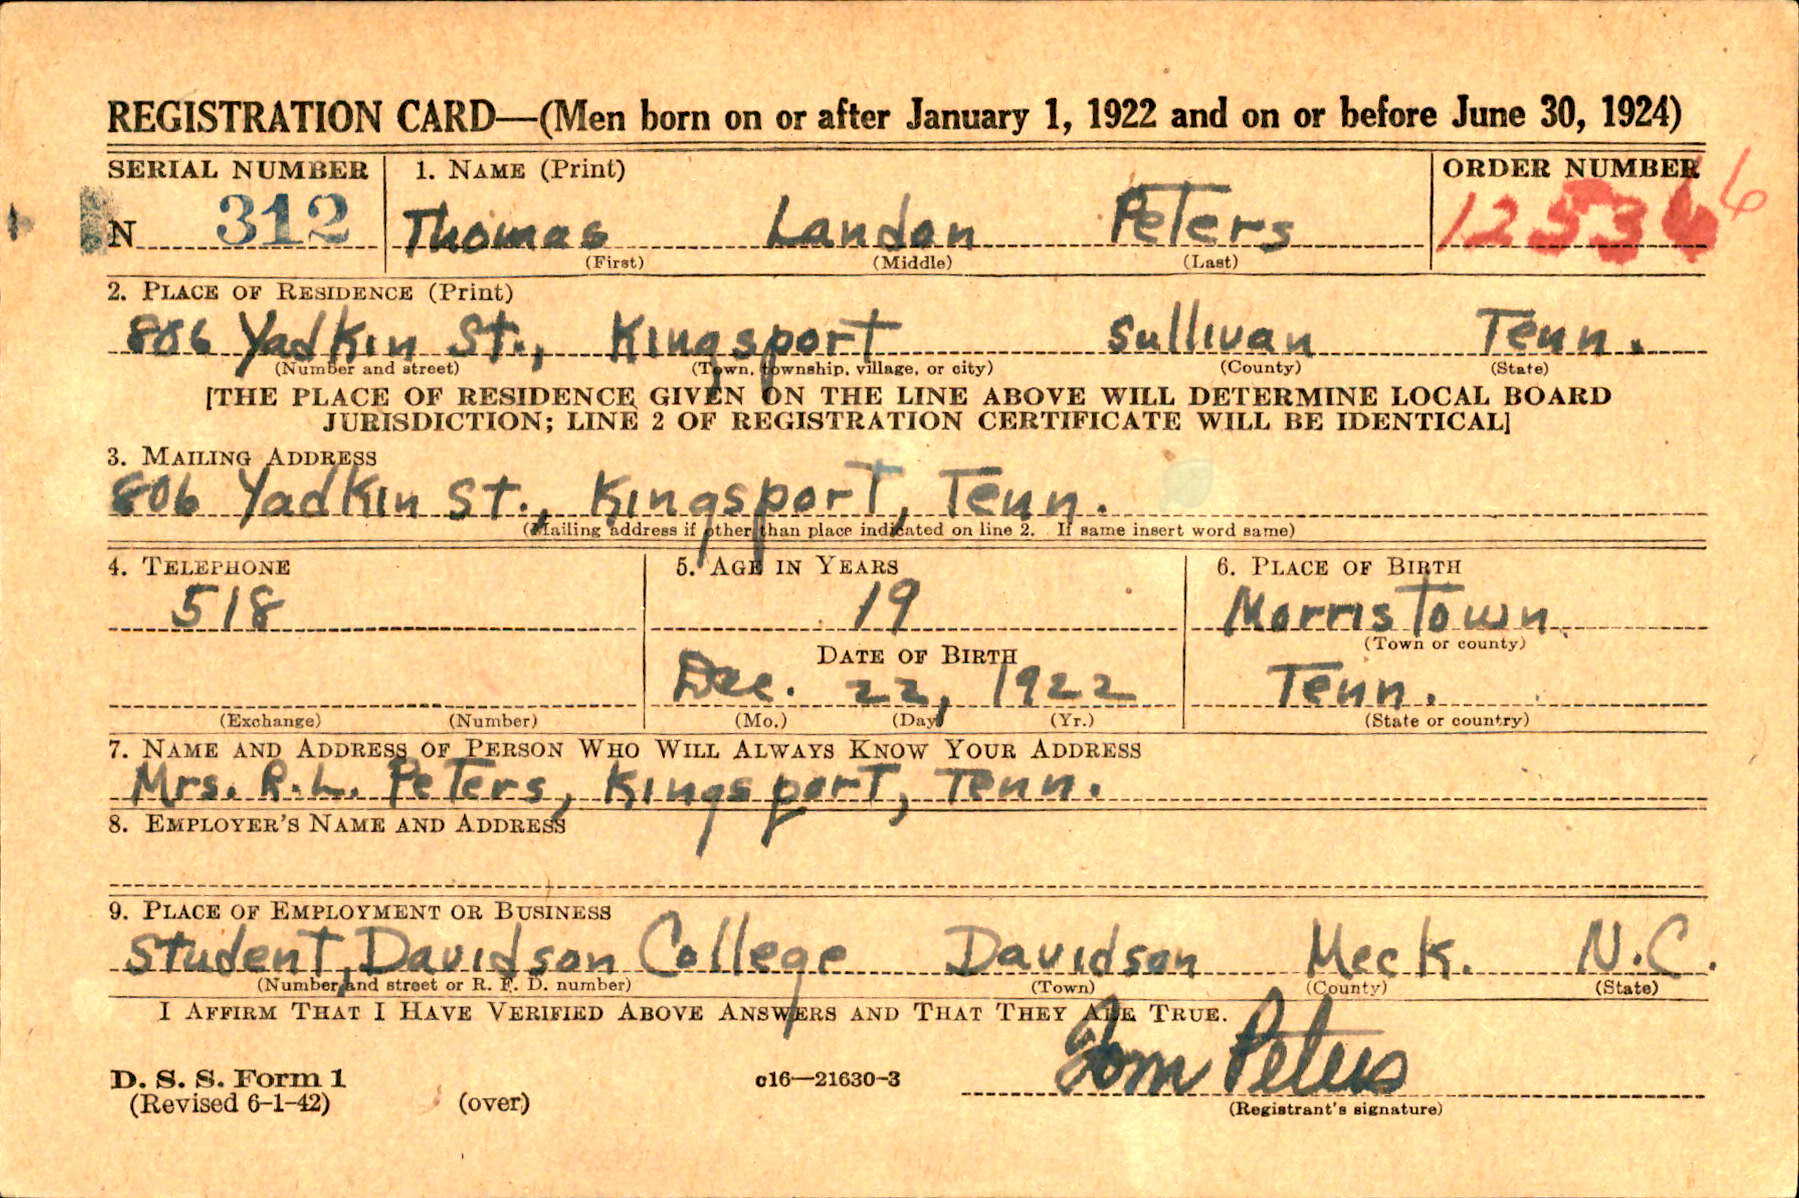 REGISTRATION CARD—(Men born on or after January 1, 1922 and on or before June 30, 1924)
SERIAL NUMBER 1. NAME (Print) ORDER NUMBER
N 312 Thomas Landon Peters
(First) (Middle) (Last)
2. PLACE OF RESIDENCE (Print)
806 Yadkin St., Kingsport Sullivan Tenn.
(Number and street) (Town, township, village, or city) (County) (State)
[THE PLACE OF RESIDENCE GIVEN ON THE LINE ABOVE WILL DETERMINE LOCAL BOARD
JURISDICTION; LINE 2 OF REGISTRATION CERTIFICATE WILL BE IDENTICAL]
3. MAILING ADDRESS
806 Yadkin St., Kingsport, Tenn.
(Mailing address if other than place indicated on line 2. If same insert word same)
4. TELEPHONE 5. AGE IN YEARS 6. PLACE OF BIRTH
518 19 Morristown
(Town or county)
DATE OF BIRTH
Dec. 22, 1922 Tenn.
(Exchange) (Number) (Mo.) (Day) (Yr.) (State or country)
7. NAME AND ADDRESS OF PERSON WHO WILL ALWAYS KNOW YOUR ADDRESS
Mrs. R.L. Peters, Kingsport, Tenn.
8. EMPLOYER'S NAME AND ADDRESS
9. PLACE OF EMPLOYMENT OR BUSINESS
Student, Davidson College Davidson Meck. N.C.
(Number and street or R. F. D. number) (Town) (County) (State)
I AFFIRM THAT I HAVE VERIFIED ABOVE ANSWERS AND THAT THEY ARE TRUE.
Tom Peters
D. S. S. Form 1 c16—21630-3
(Revised 6-1-42) (over) (Registrant's signature)